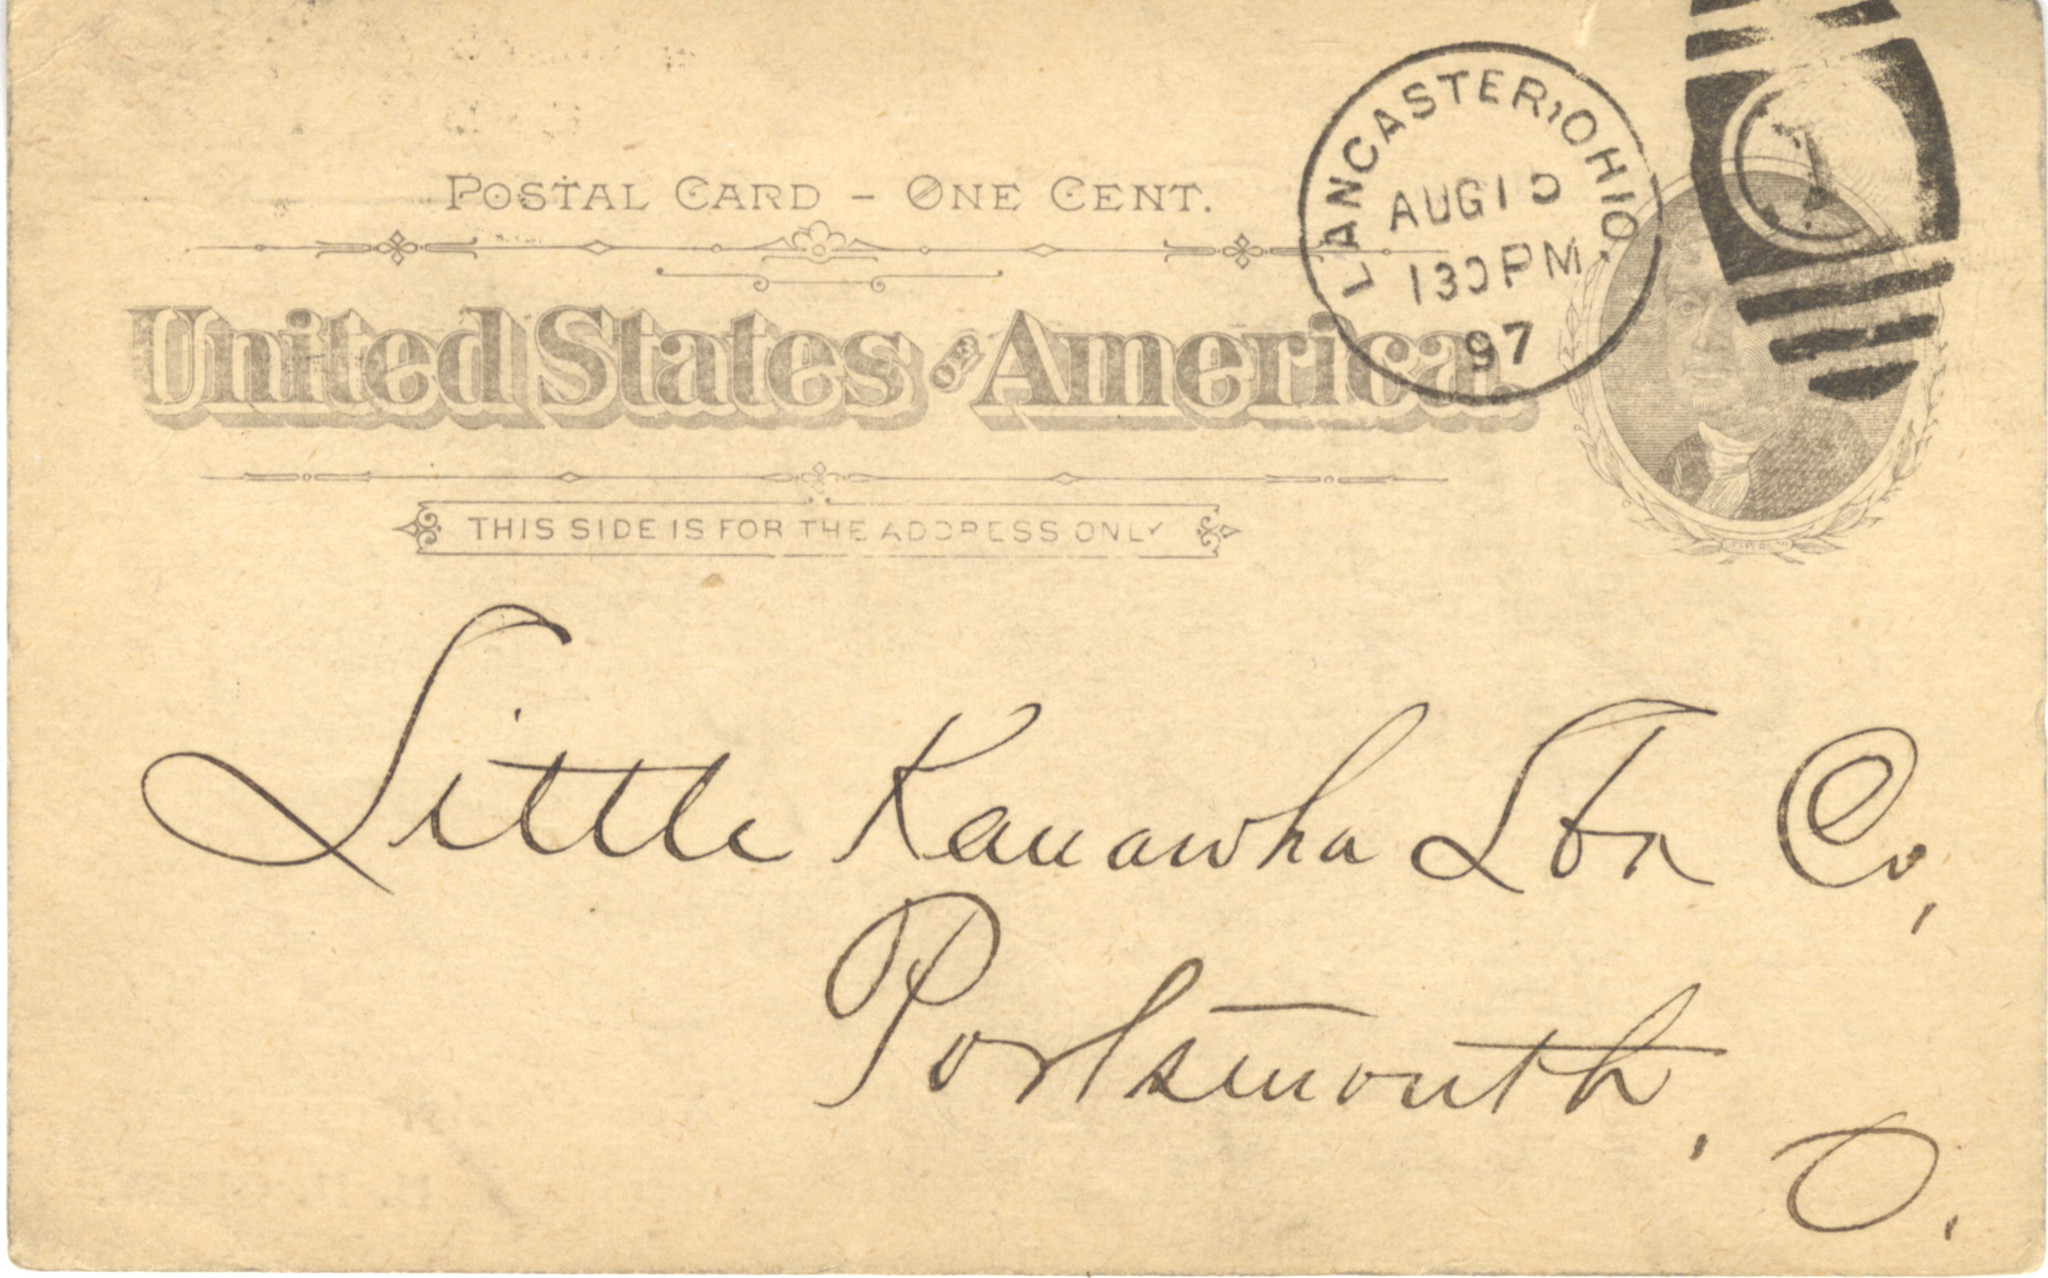 POSTAL CARD – ONE CENT.
United States of America.
THIS SIDE IS FOR THE ADDRESS ONLY
LANCASTER, OHIO.
AUG 10
130 PM
97
1
Little Kanawha Lbr Co,
Portsmouth,
O.